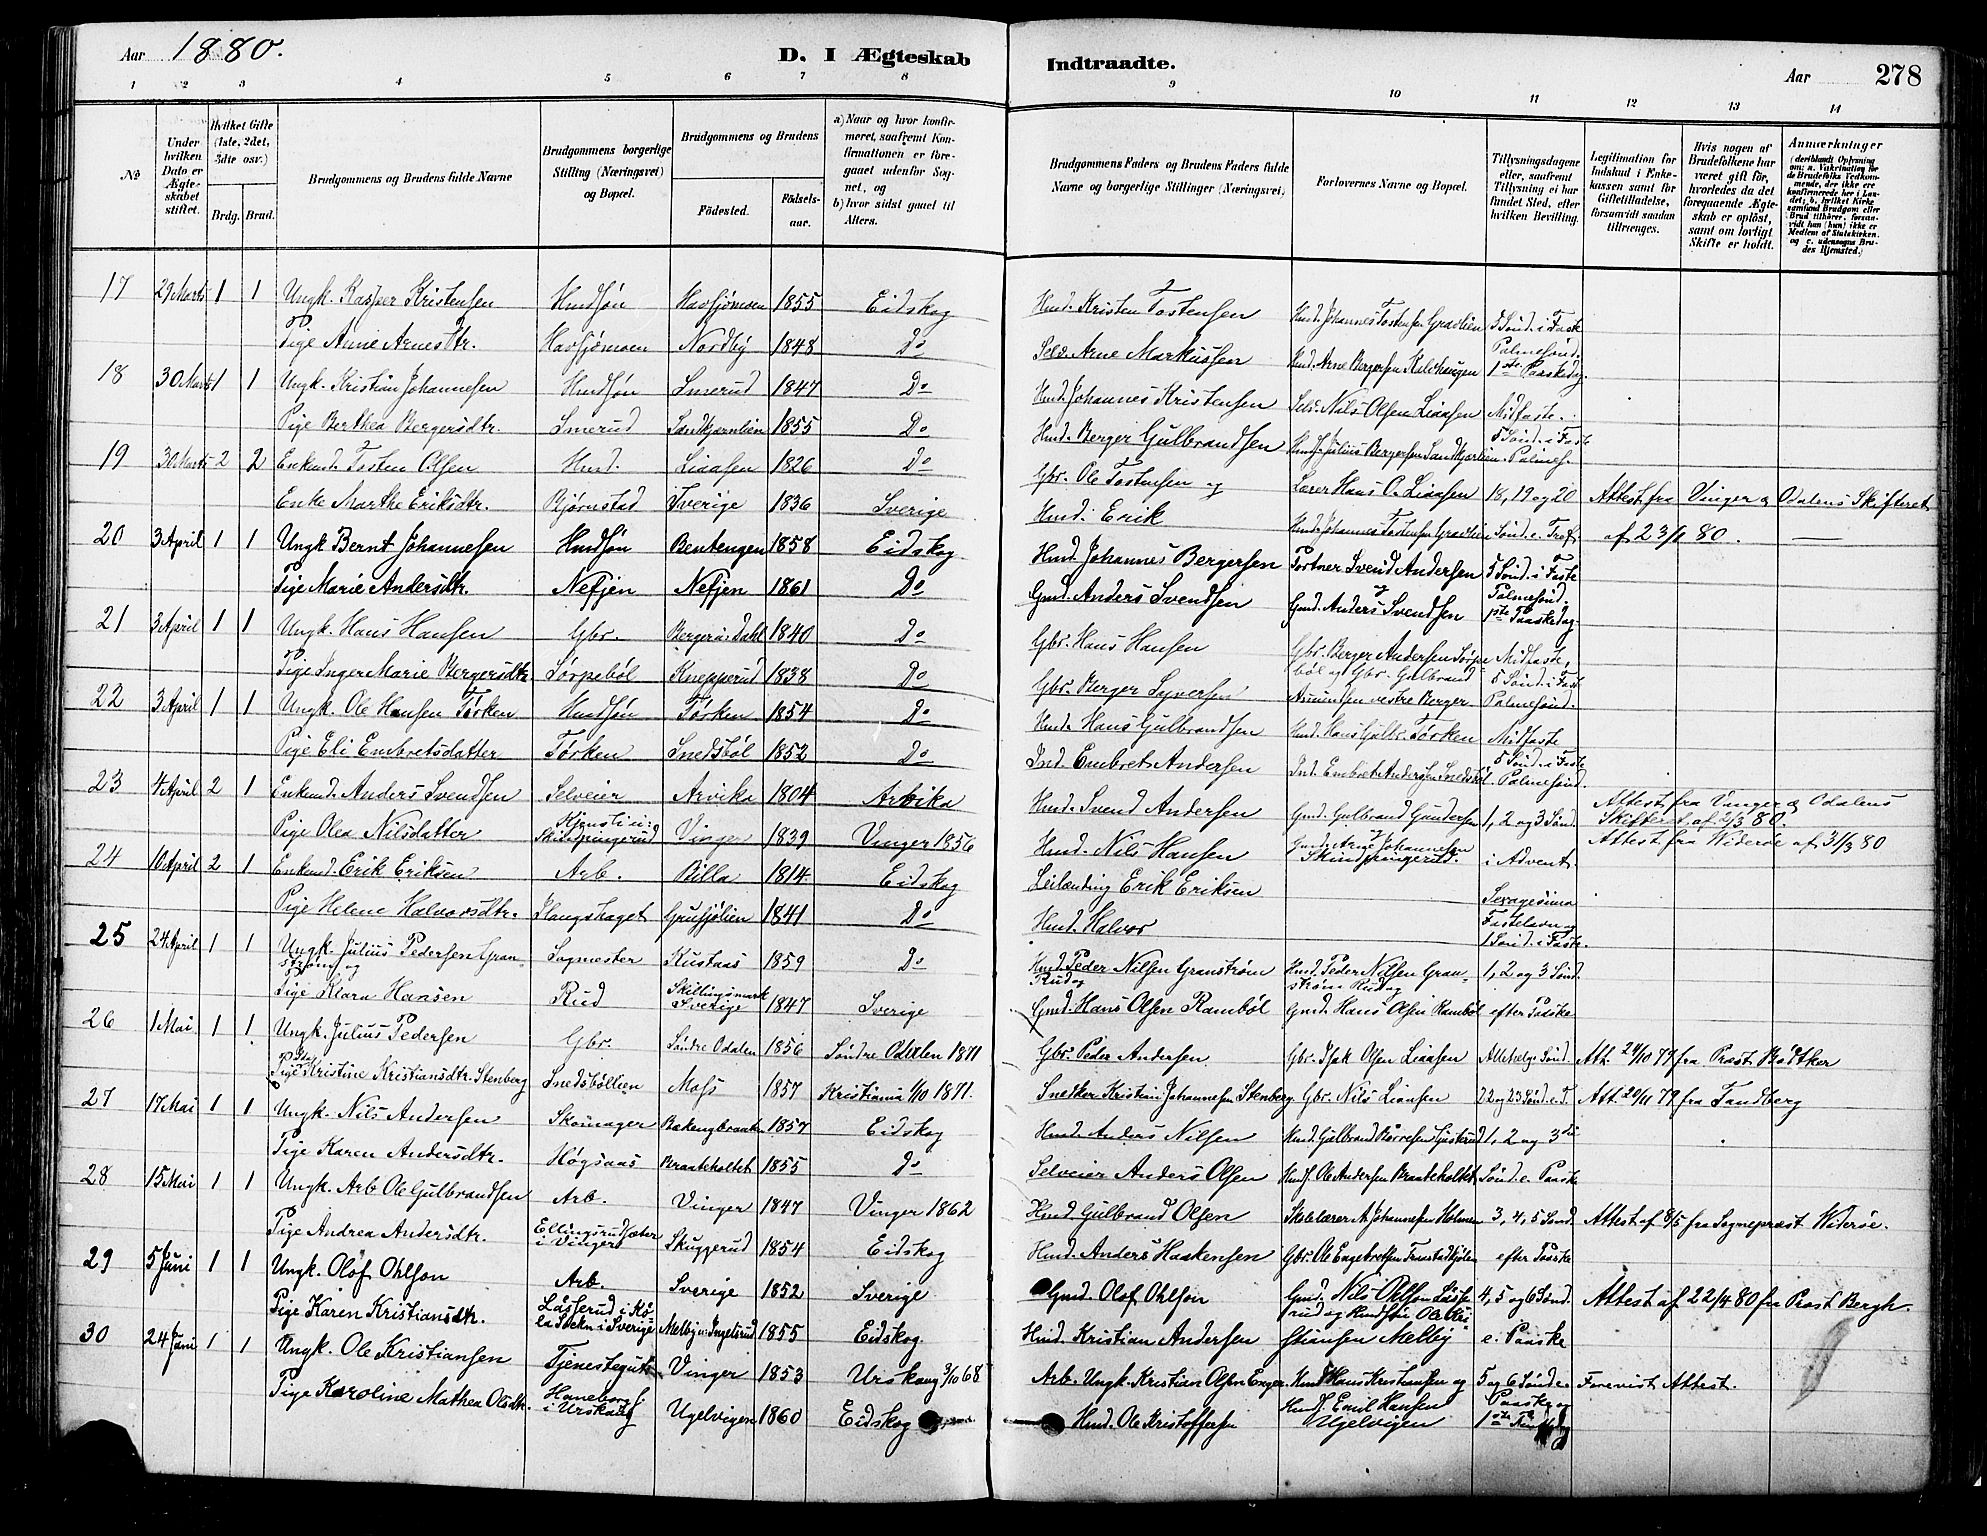 Aar 1880.
D. I Ægteskab
Indtraadte.
Aar
278
1 2 3 4 5 6 7 8 9 10 11 12 13 14
No
Under hvilken Dato er Ægteskabet stiftet.
Hvilket Gifte (1ste, 2det, 3dte osv.)
Brdg. Brud.
Brudgommens og Brudens fulde Navne
Brudgommens borgerlige Stilling (Næringsvei) og Bopæl.
Brudgommens og Brudens
Födested.
Födsels-aar.
a) Naar og hvor konfirmeret, saafremt Konfirmationen er foregaaet udenfor Sognet, og
b) hvor sidst gaaet til Alters.
Brudgommens Faders og Brudens Faders fulde Navne og borgerlige Stillinger (Næringsvei)
Forlovernes Navne og Bopæl.
Tillysningsdagene eller, saafremt Tillysning ei har fundet Sted, efter hvilken Bevilling.
Legitimation for Indskud i Enkekassen samt for Giftetilladelse, forsaavidt saadan tiltrænges.
Hvis nogen af Brudefolkene har været gift før, hvorledes da det foregaaende Ægteskab er oplöst, samt om lovligt Skifte er holdt.
Anmærkninger
17 29 Marts 1 1 Ungk. Kasper Kristensen Hmdsøn Havsjømoen 1855 Eidskog Hmd. Kristen Tostensen Hmd. Johannes Tostensen Gravlien 5 Sønd. i Faste
Pige Anne Arnesdtr. Havsjømoen Nordby 1848 Do Selv. Arne Markussen Hmd. Arne Bergersen Kaldhaugen Palmesønd. 1ste Paaskedag
18 30 Marts 1 1 Ungk. Kristian Johannesen Hmdsøn Smerud 1847 Do Hmd. Johannes Kristensen Selv. Nils Olsen Liaasen Midfaste.
Pige Berthea Bergersdtr. Smerud Sandkjernlien 1855 Do Hmd. Berger Gulbrandsen Hmds. Julius Bergersen Sandkjærlien 5 Sønd. i Faste Palmes.
19 30 Marts 2 2 Enkemd. Tosten Olsen Hmd. Liaasen 1826 Do Gbr. Ole Tostensen og Lærer Hans O. Liaasen 18, 19 og 20 Attest fra Vinger & Odalens Skifteret
Enke Marthe Eriksdtr. Bjørnstad Sverige 1836 Sverige Hmd. Erik Hmd. Johannes Tostensen Gravlien Sønd. e. Tref. af 23/1 80.
20 3 April 1 1 Ungk Bernt Johannesen Hmdsøn Bentengen 1858 Eidskog Hmd. Johannes Bergersen Portner Svend Andersen 5 Sønd. i Faste
Pige Marie Andersdtr. Nefjen Nefjen 1861 Do Gmd. Anders Svendsen Gmd. Anders Svendsen Palmesønd. 1ste Paaskedag
21 3 April 1 1 Ungk. Hans Hansen Gbr. Bergerùs Dahl 1840 Do Gbr. Hans Hansen Gbr. Berger Andersen Sørpebøl og Gbr. Gulbrand Midfaste,
Pige Inger Marie Bergersdtr Sørpebøl Knepperud 1838 Do Gbr. Berger Syversen Amundsen vestre Berger 5 Sønd. i Fast Palmesønd.
22 3 April 1 1 Ungk. Ole Hansen Tørken Hmdsøn Tørken 1854 Do Hmd. Hans Gulbrandsen Hmd. Hans Gulbr. Tørken Midfaste
Pige Eli Embretsdatter Tørken Snedsbøl 1852 Do Ind. Embret Andersen Ind. Embret Andersen Snedsbøl 5 Sønd. i Faste Palmesønd.
23 4 April 2 1 Enkemd. Anders Svendsen Selveier Arvika 1804 Arvika Hmd. Svend Andersen Gmd. Gulbrand Gundersen 1, 2 og 3 Sønd. Attest fra Vinger & Odalens Skifteret af 2/3 80.
Pige Olea Nilsdatter Skindpungerud Vinger 1839 Vinger 1856 Hmd. Nils Hansen Johannesen Skindpungerud. i Advent. Attest fra Widerøe af 31/3 80
24 10 April 2 1 Enkemd. Erik Eriksen Arb. Billa 1814 Eidskog Leilænding Erik Eriksen
Pige Helene Halvorsdtr. Slangshaget Grusjølien 1841 Do Hmd. Halvor Sexagesima Fastelavn og 1 Sønd. i Faste.
25 24 April 1 1 Ungk. Julius Pedersen Granstrøm og Sagmester Kustaas 1859 Do Hmd. Peder Nilsen Granstrøm Rud og Hmd. Peder Nilsen Granstrøm Rud og 1, 2 og 3 Sønd.
Pige Klara Hansen Rud Skillingsmark Sverige 1847 Sverige Gmd. Hans Olsen Rambøl Gmd. Hans Olsen Rambøl efter Paaske
26 1 Mai. 1 1 Ungk. Julius Pedersen Gbr. Søndre Odalen 1856 Søndre Odalen 1871 Gbr. Peder Andersen Gbr. Isak Olsen Liaasen Allehelge Sønd. Att. 24/10 79 fra Præst Bødtker
Pige Kristine Kristiansdtr. Stenberg Snedsbøllien Moss 1857 Kristiania 1/10 1871. Snedker Kristian Johannesen Stenberg. Gbr. Nils Liaasen 22 og 23 Sønd. e. T. Att. 20/11 79 fra Tandberg
27 17 Mai 1 1 Ungk. Nils Andersen Skomager Bakengbraaten 1857 Eidskog Hmd. Anders Nilsen Hmd. Gulbrand Børresen Gusterud 1, 2 og 3die
Pige Karen Andersdtr. Høgsaas Braateholtet 1855 Do Selveier Anders Olsen Hmds. Ole Andersen Braateholtet Sønd. e. Paaske
28 15 Mai 1 1 Ungk. Arb Ole Gulbrandsen Arb. Vinger 1847 Vinger 1862 Hmd. Gulbrand Olsen Skolelærer A. Johannesen Holmen 3, 4, 5 Sønd. Attest af 8/5 fra Sognepræst Widerøe.
Pige Andrea Andersdtr. Ellingsrudsæter i Vinger Skuggerud 1854 Eidskog Hmd. Anders Haakensen Gbr. Ole Engebretsen efter Paaske
29 5 Juni 1 1 Ungk. Olof Ohlson Arb. Sverige 1852 Sverige Gmd. Olof Ohlson Gmd. Nils Ohlson Låsserud og Hmdsøn Ole Kri- 4, 5 og 6 Sønd. Attest af 22/4 80 fra Prost Bergh.
Pige Karen Kristiansdtr. Låsserud i Köla Sockn i Sverige Melby u. Ingelsrud 1855 Eidskog. Hmd. Kristian Andersen stiansen Melby e. Paaske
30 24 Juni 1 1 Ungk. Ole Kristiansen Tjenestegut Vinger 1853 Urskoug 3/10 68 Arb. Ungk. Kristian Olsen Enger Hmd Hans Kristiansen og 5 og 6 Sønd. e. Forevist Attest.
Pige Karoline Mathea Olsdtr. Haneborg i Urskoug Ugelvigen 1860 Eidskog Hmd. Ole Kristoffersen Hmds. Emil Hansen Ugelvigen Paaske og